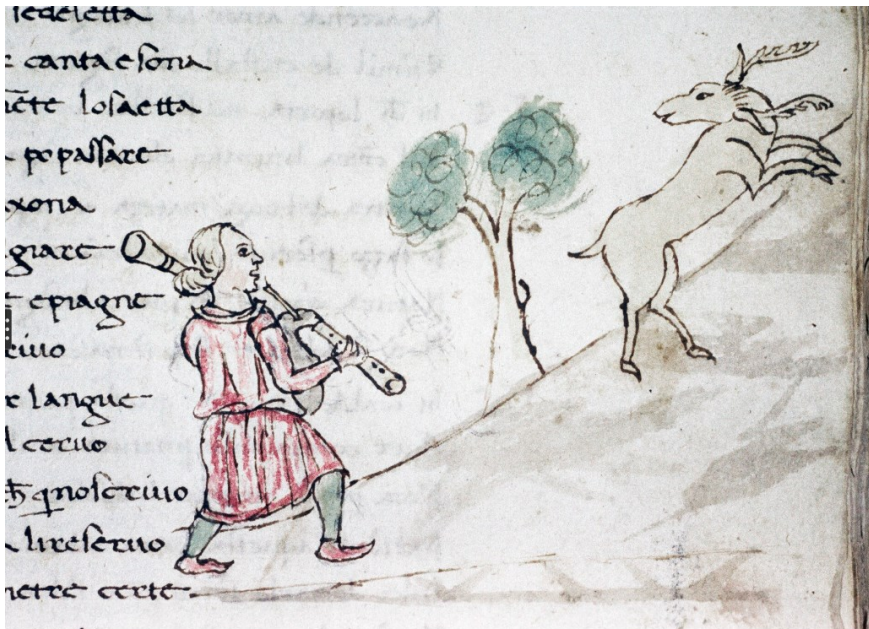 sedeletta
e canta e sona
nēte losaetta
po passare
xona
giare
e piagne
ciuo
e langue
l ceruo
ꝗnoscriuo
lireseruo
netre certe